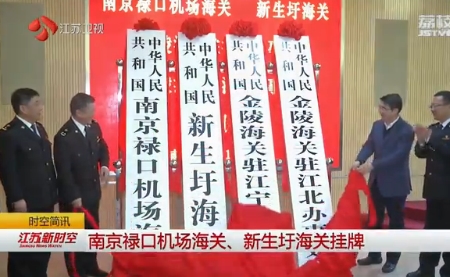 江苏卫视
荔枝
JSTV
南京禄口机场海关 新生圩海关
中华人民
共和国
南京禄口机场海
中华人民
共和国
新生圩海
中华人民
共和国
金陵海关驻江宁
中华人民
共和国
金陵海关驻江北办
时空简讯
江苏新时空
南京禄口机场海关、新生圩海关挂牌